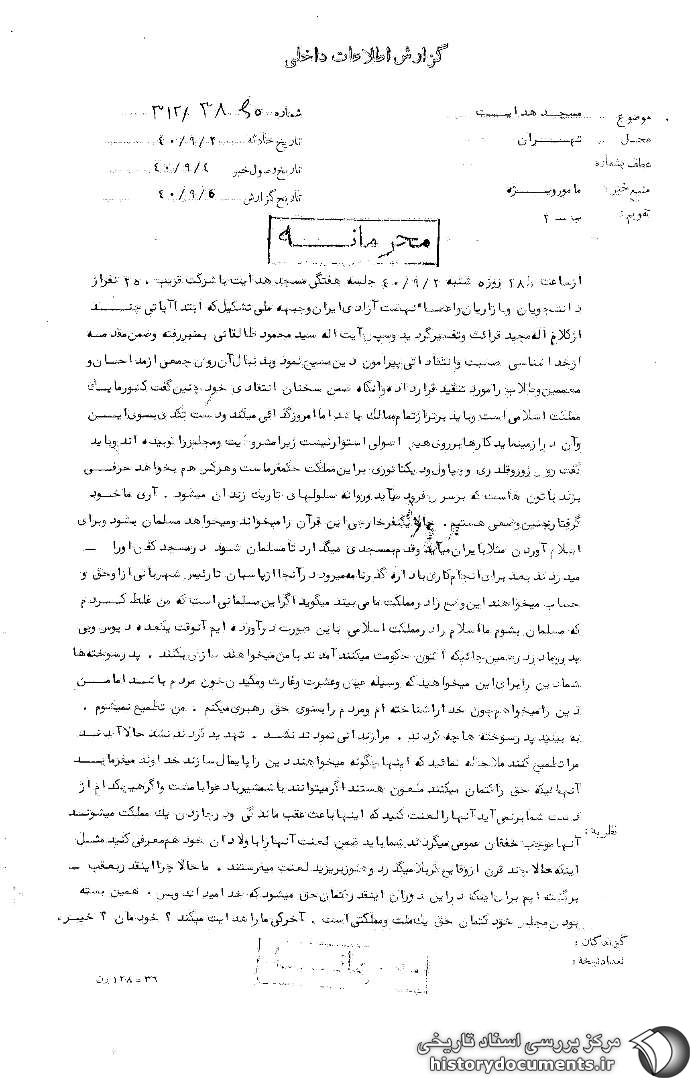 گزارش اطلاعات داخلی
موضوع : مسجد هدایت
محل : تهران
عطف بشماره
منبع خبر : مامور ویژه
تقویم : ب - ۲
شماره ۳۱۲/۳۸۶۵
تاریخ حادثه ۴۰/۹/۲
تاریخ وصول خبر ۴۰/۹/۴
تاریخ گزارش ۴۰/۹/۶
محرمانه
از ساعت روز ۵ شنبه ۴۰/۹/۲ جلسه هفتگی مسجد هدایت با شرکت قریب ۲۵۰ نفر از
دانشجویان و بازاریان و اعضاء نهضت آزادی ایران و جبهه ملی تشکیل که ابتدا آیاتی چند
از کلام اله مجید قرائت و تفسیر گردید و سپس آیت اله سید محمود طالقانی بمنبر رفته و ضمن مقدمه
از خدا شناسی صحبت و انتقاداتی پیرامون دین مسیح نمود و بدنبال آن روش جمعی از مداحان و
معممین و طلاب را مورد تنقید قرار داده و آنگاه ضمن سخنان انتقادی خود چنین گفت کشور ما یک
مملکت اسلامی است و باید برتر از تمام ممالک باشد اما امروز گدائی میکند و دست تکدی بسوی این
و آن دراز مینماید کارها بر روی هیچ اصولی استوار نیست زیرا مشروطیت و مجلس را کوبیده اند و باید
گفت روش زور و قلدری و چپاول و دیکتاتوری بر این مملکت حکمفرماست و هرکس هم بخواهد حرفی
بزند باتون هاست که بر سرش فرود میآید و روانه سلولهای تاریک زندان میشود . آری ما خود
گرفتار چنین وضعی هستیم . حالا یکنفر خارجی این قرآن را میخواند و میخواهد مسلمان بشود و برای
اسلام آوردن مثلا بایران میآید و قدم بمسجدی میگذارد تا مسلمان شود در مسجد کفش او را
میدزدند بعد برای انجام کاری باداره گذرنامه میرود در آنجا از پاسبان تا رئیس شهربانی از او حق و
حساب میخواهند این وضع را در مملکت ما می بیند میگوید اگر این مسلمانی است که من غلط کردم
که مسلمان بشوم ما اسلام را در مملکت اسلامی باین صورت درآورده ایم آنوقت یکعده دیوس و بی
پدر و مادر در همین جائیکه اکنون حکومت میکنند آمدند با من میخواهند سازش کنند . پدر سوخته ها
شما دین را برای این میخواهید که وسیله عیش و عشرت و غارت و مکیدن خون مردم باشد اما من
دین را میخواهم چون خدا را شناخته ام و مردم را بسوی حق رهبری میکنم . من تطمیع نمیشوم .
به بینید پدر سوخته ها چه کردند . مرا زندانی نمودند نشد . تهدید کردند نشد حالا آمدند
مرا تطمیع کنند ملاحظه نمائید که اینها چگونه میخواهند دین را پایمال سازند خداوند میفرماید
آنهائیکه حق را کتمان میکنند ملعون هستند اگر میتوانند با شمشیر یا دعوا یا مشت و اگر هیچکدام از
دست شما برنمی آید آنها را لعنت کنید که اینها باعث عقب ماندگی و درجا زدن یک مملکت میشوند
آنها موجب خفقان عمومی میگردند شما باید ضمن لعنت آنها را باولادان خود هم معرفی کنید مثل
اینکه حالا چند قرن از وقایع کربلا میگذرد و هنوز بریزید لعنت میفرستند . ما حالا چرا اینقدر بعقب
برگشته ایم برای اینکه در این دوران اینقدر کتمان حق میشود که خدا میداند و بس . همین بسته
بودن مجلس خود کتمان حق یک ملت و مملکتی است . آخر کی ما را هدایت میکند ؟ خودمان ؟ خیر .
نظریه :
گیرندگان :
تعداد نسخه :
محرمانه
۳۶ - ۱۲۰۸ ن
مرکز بررسی اسناد تاریخی
historydocuments.ir